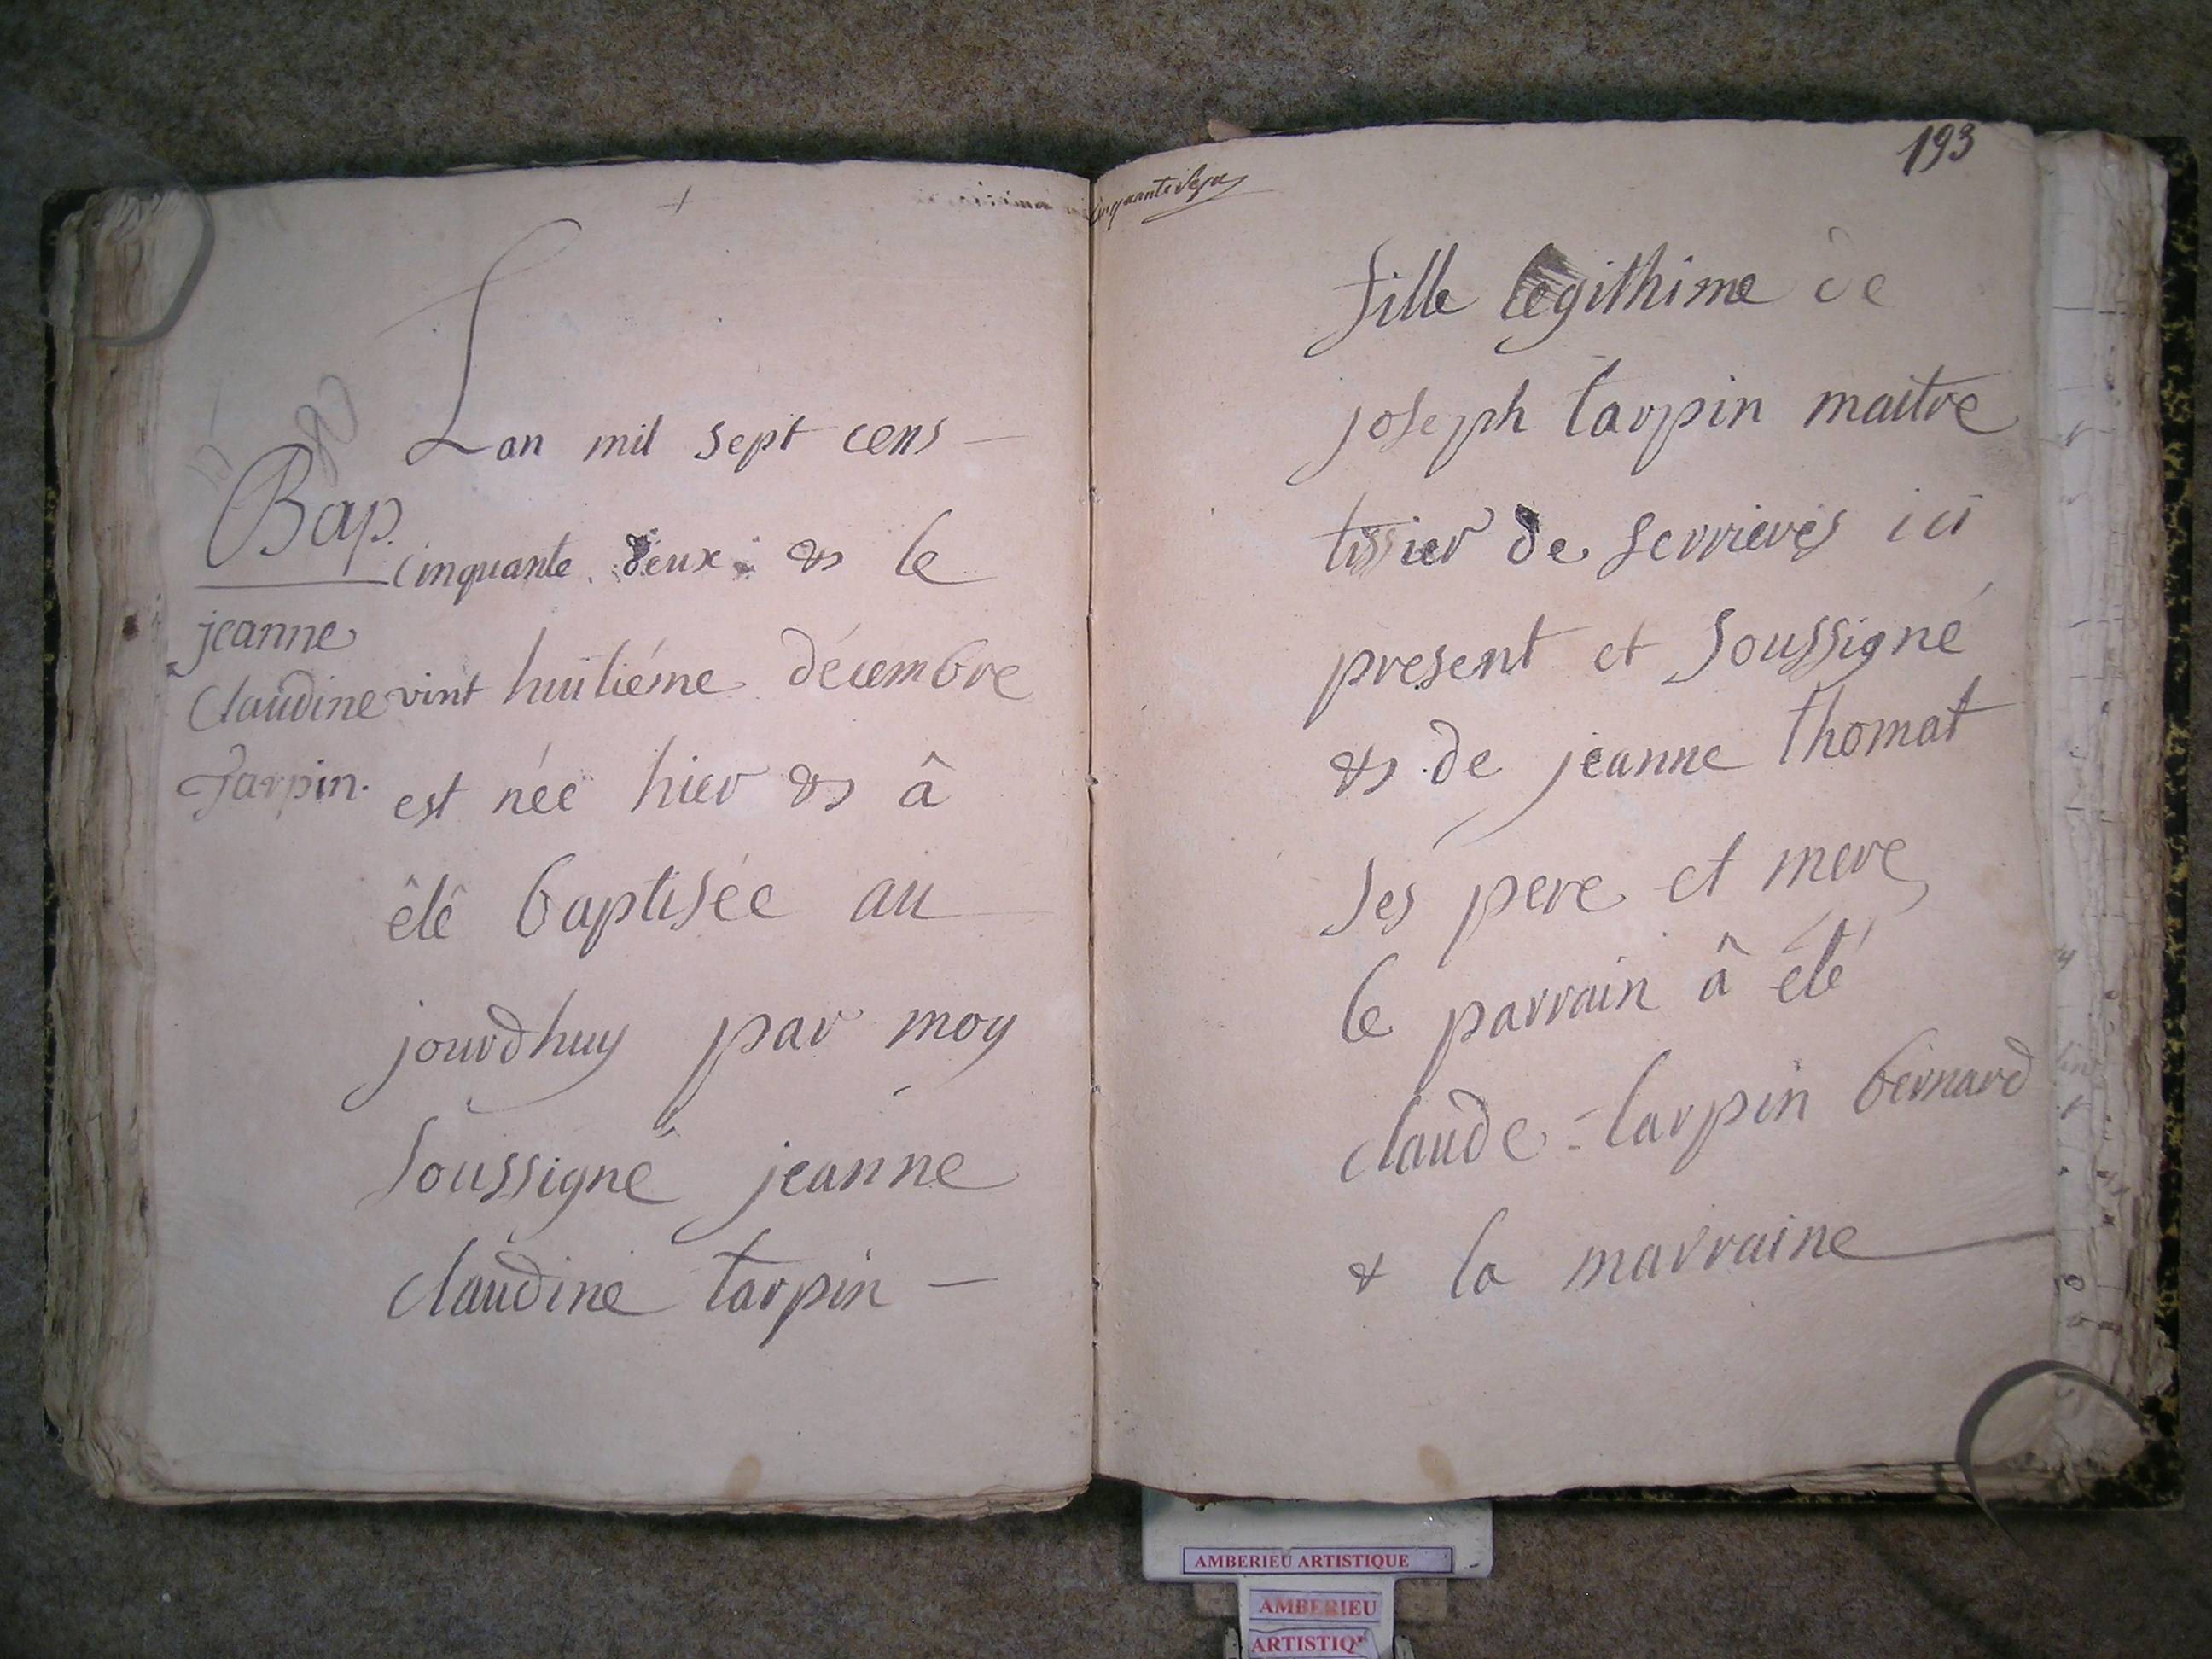 Lan mil sept cens
Bap.
jeanne
Claudine
Tarpin.
cinquante deux & le
vint huitiéme décembre
est née hier & â
êtê baptisée au
jourdhuy par moy
soussigné jeanne
claudine tarpin
cinquante sept
193
fille legithime de
joseph tarpin maitre
tissier de serrieres ici
present et soussigné
& de jeanne thomat
ses pere et mere
le parrain â été
claude tarpin bernard
& la marraine
AMBERIEU ARTISTIQUE
AMBERIEU
ARTISTIQ